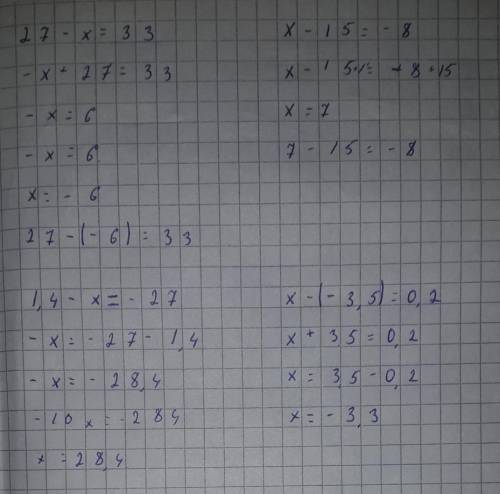 27 - x = 33
- x + 27 = 33
- x = 6
- x = 6
x = - 6
27 - (- 6) = 33
x - 15 = - 8
x = 7
7 - 15 = - 8
1,4 - x = - 27
- x = - 27 - 1,4
- x = - 28,4
- 10 x = - 284
x = 28,4
x - (- 3,5) = 0,2
x + 3,5 = 0,2
x = 3,5 - 0,2
x = - 3,3